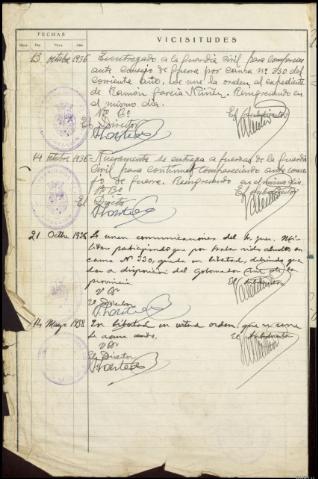 FECHAS
VICISITUDES
Día Mes Año
13 octubre 1936 Es entregado a la Guardia Civil para comparecer
ante consejo de guerra por causa nº 330 del
corriente año, se une la orden al expediente
de Ramón García Núñez. Reingresando en
el mismo día.
Vº Bº
El Director
El
14 octubre 1936 - Nuevamente se entrega a fuerzas de la Guardia
Civil para continuar compareciendo ante conse-
jo de guerra. Reingresando en el mismo día
Vº Bº
El Director
21 Octbre 1936 Se unen comunicaciones del Sr. Juez Mili-
tar participando que por haber sido absuelto en
causa Nº 330, quede en libertad, debiendo que-
dar a disposición del Gobernador Civil de la
provincia
Vº Bº
El Director
14 Mayo 1938 En libertad en virtud orden, que se une
Vº Bº
El Director